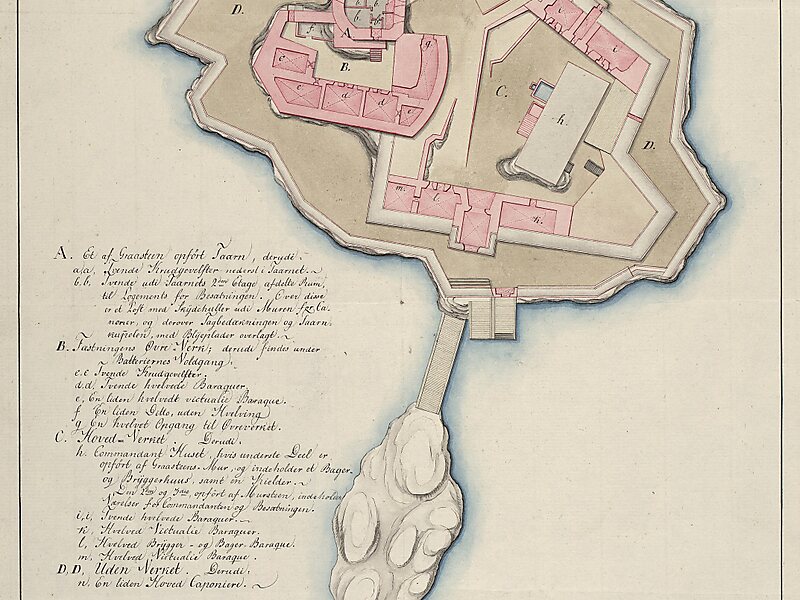 D.
b.
b.
b.
A.
f
g
e
B.
c
d
d
c
i.
i.
C.
h.
D.
m.
l.
k.
A. Et af Graasteen opfört Taarn, derudi.
a,a, Tvende Krudgevelfter nederst i Taarnet.
b.b. Tvende udi Taarnets 2den Etage afdelte Rum,
til Logements for Besatningen. Over disse
er et Loft med Skydehuller udi Muren for Ca-
noner, og derover Tagbedækningen og Taarn
kupolen, med Blyeplader overlagt.
B. Fæstningens Övre Verk; derudi findes under
Batteriernes Voldgang.
c.c Tvende Krudgevelfter.
d.d, Tvende hvelvede Baraquer.
e, En liden hvelvedt victualie Baraque.
f En liden Dito, uden Hvelving
g En hvelvet Opgang til Övreverket.
C. Hoved-Verket. Derudi.
h. Commandant Huset, hvis underste Deel er
opfört af Graasteens-Mur, og indeholder et Bager-
og Bryggerhuus, samt en Kielder.
2den og 3die opfört af Muursteen, indeholder
Værelser for Commandanten og Besatningen.
i,i, Tvende hvelvede Baraquer.
k, Hvelved Victualie Baraquer.
l, Hvelved Brygger- og Bager-Baraque.
m. Hvelved Victualie Baraque.
D, D, Uden Verket. Derudi.
n. En liden Hoved Caponiere.